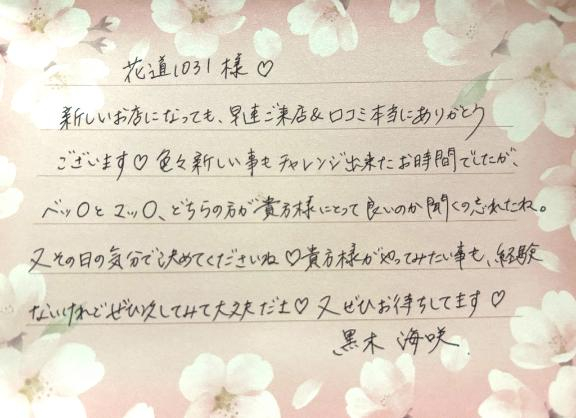 花道1031様♡
新しいお店になっても、早速ご来店&口コミ本当にありがとう
ございます♡色々新しい事もチャレンジ出来たお時間でしたが、
ベッ〇とマッ〇、どちらの方が貴方様にとって良いのか聞くの忘れたね。
又その日の気分で決めてくださいね♡貴方様がやってみたい事も、経験
ないけれどぜひ次してみて大丈夫だよ♡又ぜひお待ちしてます♡
黒木 海咲